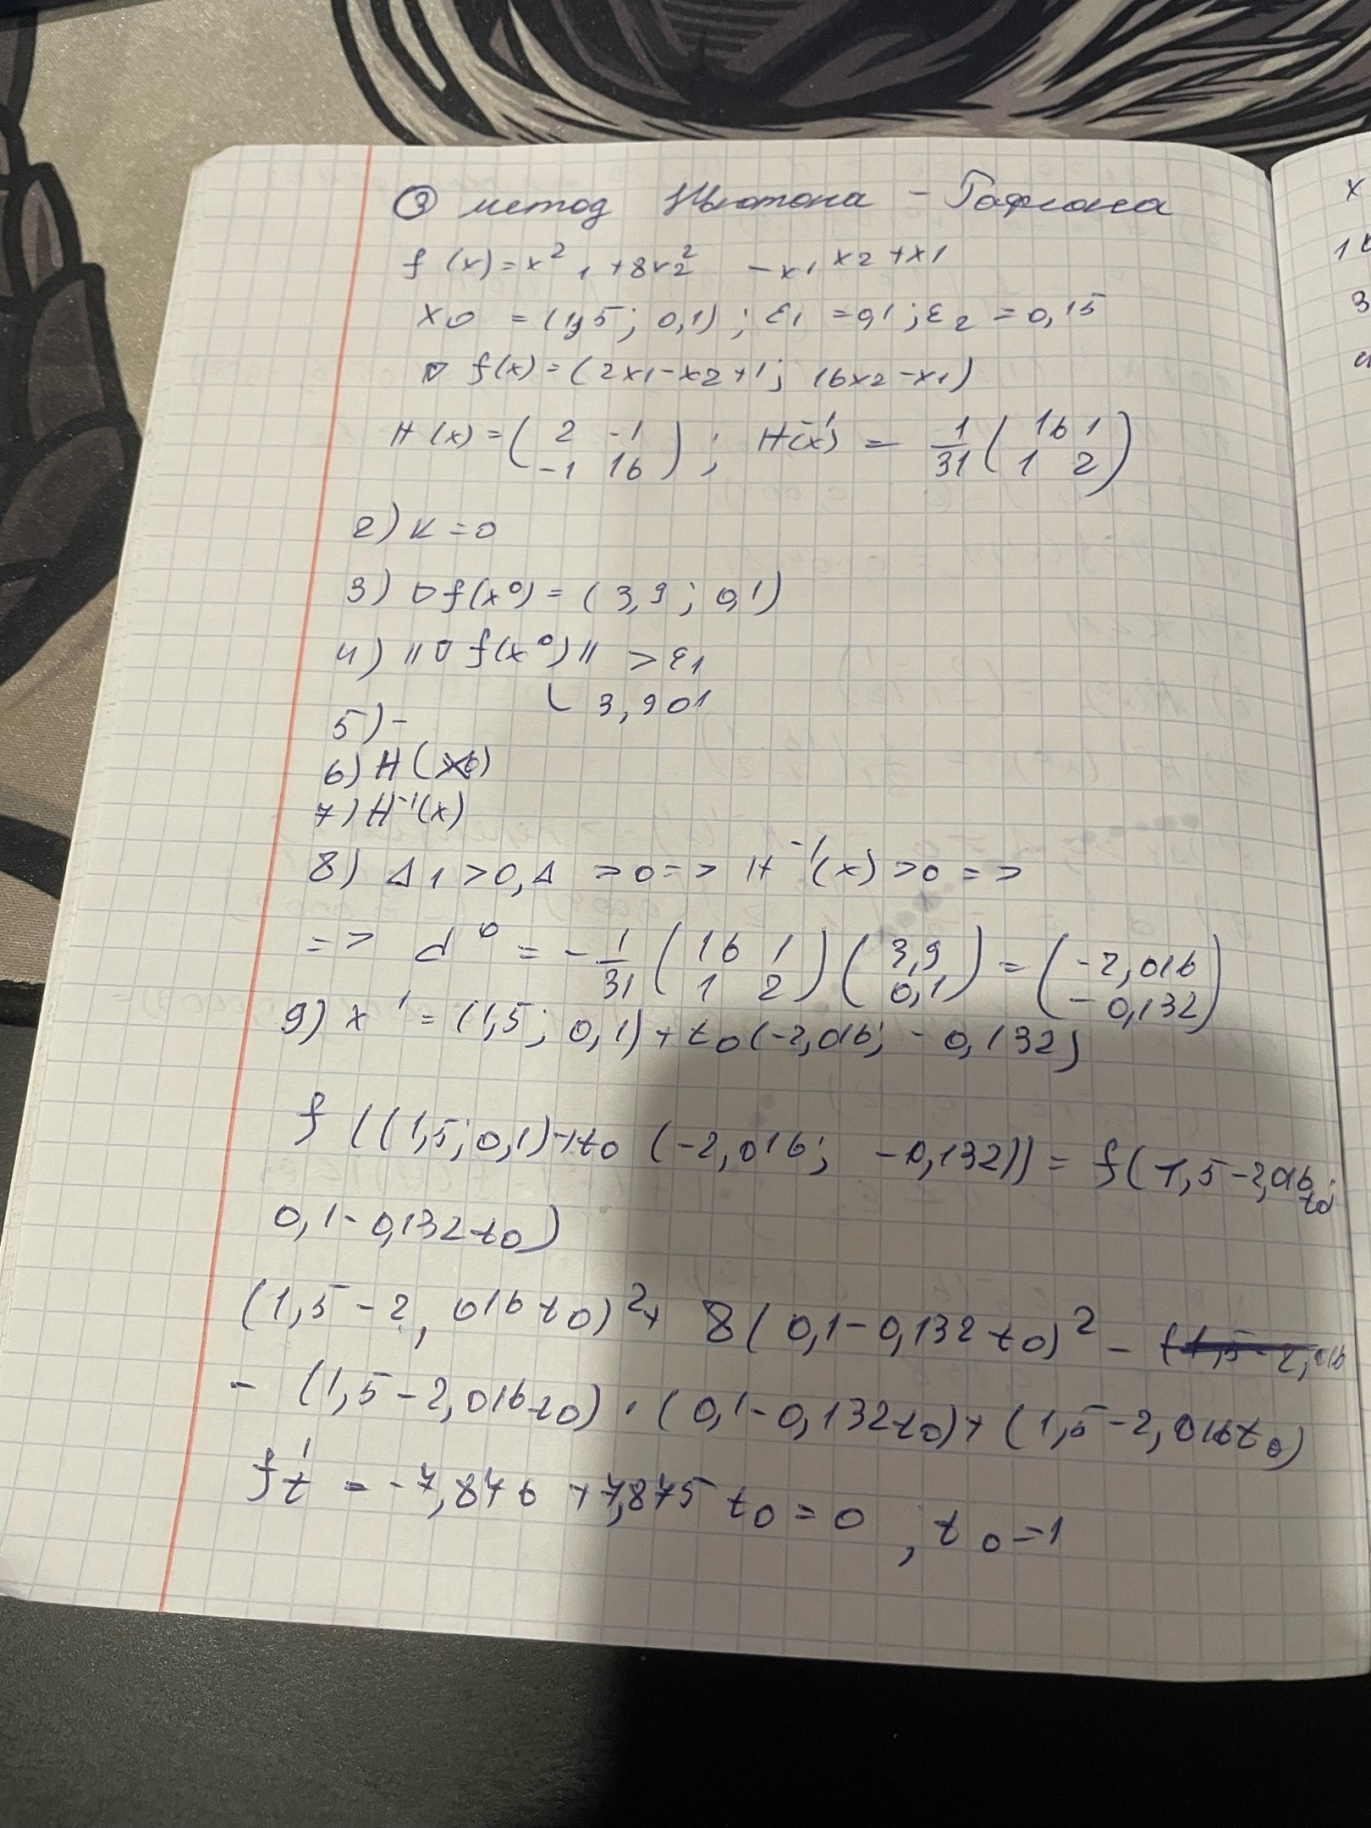 ③ метод Ньютона - Рафсона
f (x) = x²₁ + 8x₂² - x₁ x₂ + x₁
x₀ = (1,5; 0,1); ε₁ = 0,1; ε₂ = 0,15
∇ f(x) = (2x₁ - x₂ + 1; 16x₂ - x₁)
H (x) = ( 2 -1
-1 16 ) ; H⁻¹(x) = 1/31 ( 16 1
1 2 )
2) k = 0
3) ∇f(x⁰) = (3,9; 0,1)
4) ||∇ f(x⁰)|| > ε₁
3,901
5) -
6) H (x₀)
7) H⁻¹(x)
8) Δ₁ > 0, Δ > 0 => H⁻¹(x) > 0 =>
=> d⁰ = - 1/31 ( 16 1
1 2 ) ( 3,9
0,1 ) = ( -2,016
-0,132 )
9) x¹ = (1,5; 0,1) + t₀(-2,016; -0,132)
f ((1,5; 0,1) + t₀ (-2,016; -0,132)) = f(1,5 - 2,016 t₀;
0,1 - 0,132 t₀)
(1,5 - 2,016 t₀)² + 8(0,1 - 0,132 t₀)² - (1,5 - 2,016
- (1,5 - 2,016 t₀) · (0,1 - 0,132 t₀) + (1,5 - 2,016 t₀)
f't = -7,876 + 7,875 t₀ = 0, t₀ = 1
x
1
3